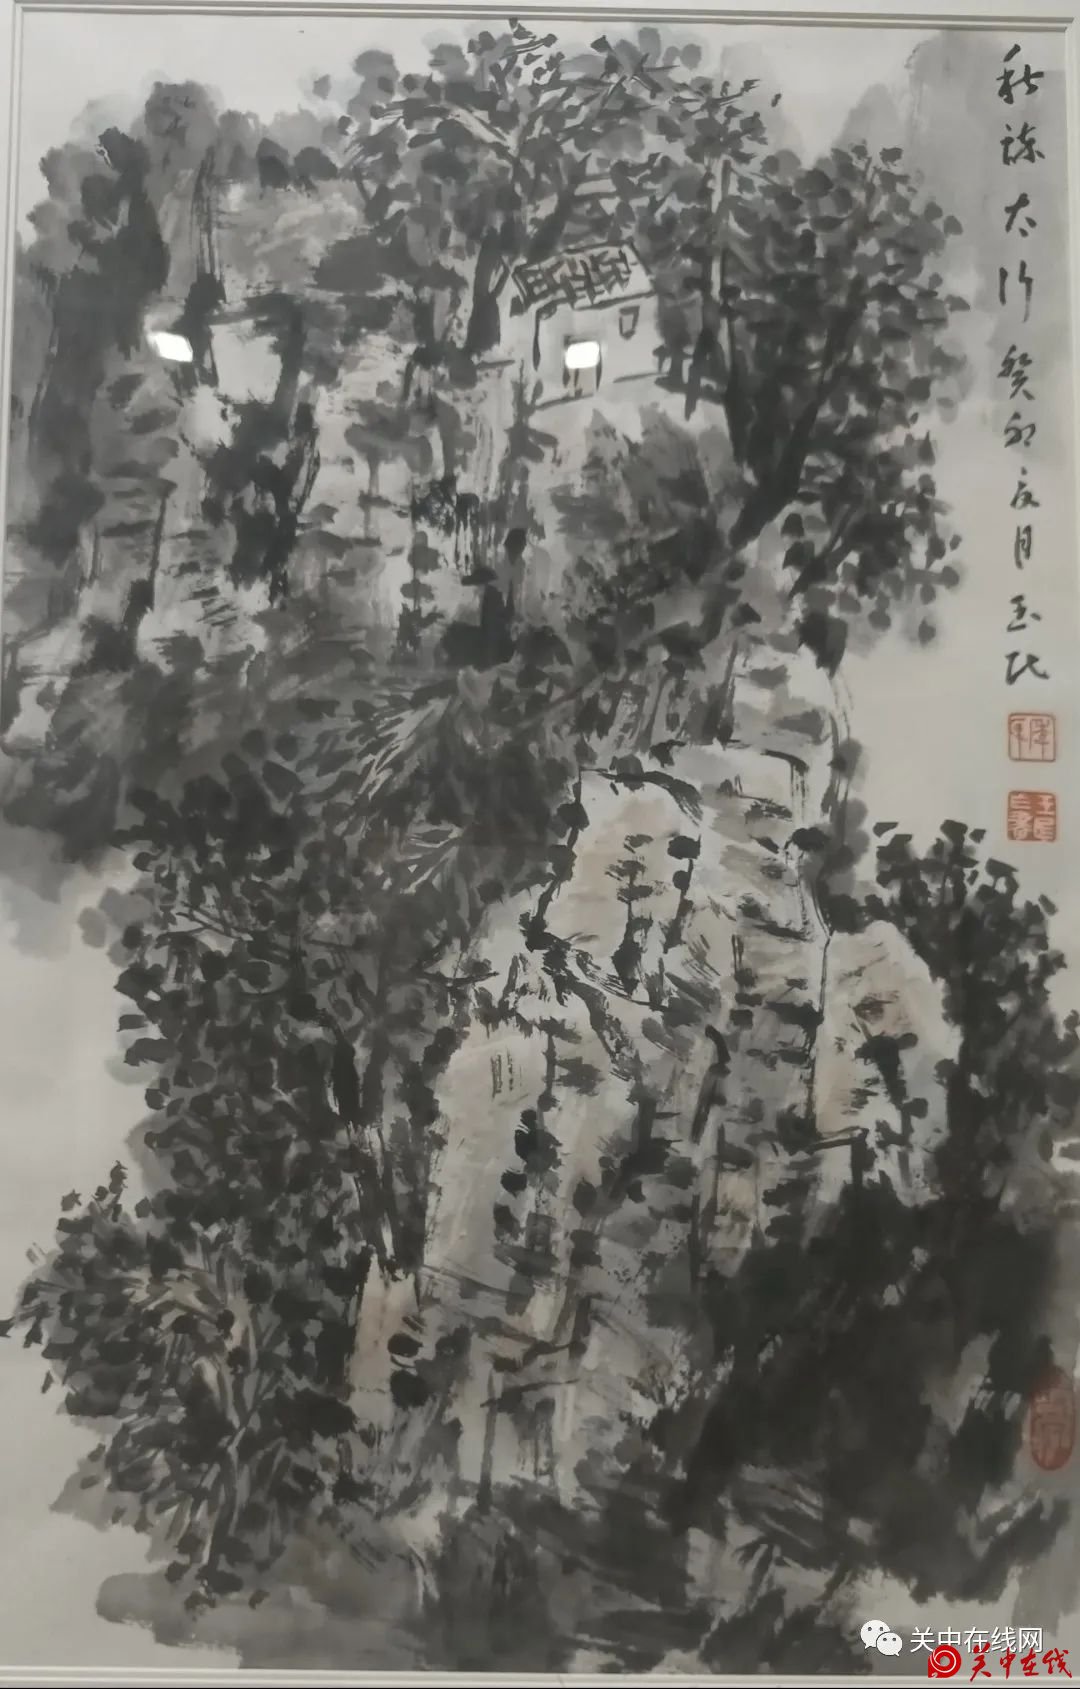 秋太行癸卯夏月玉民
关中在线网
关中在线